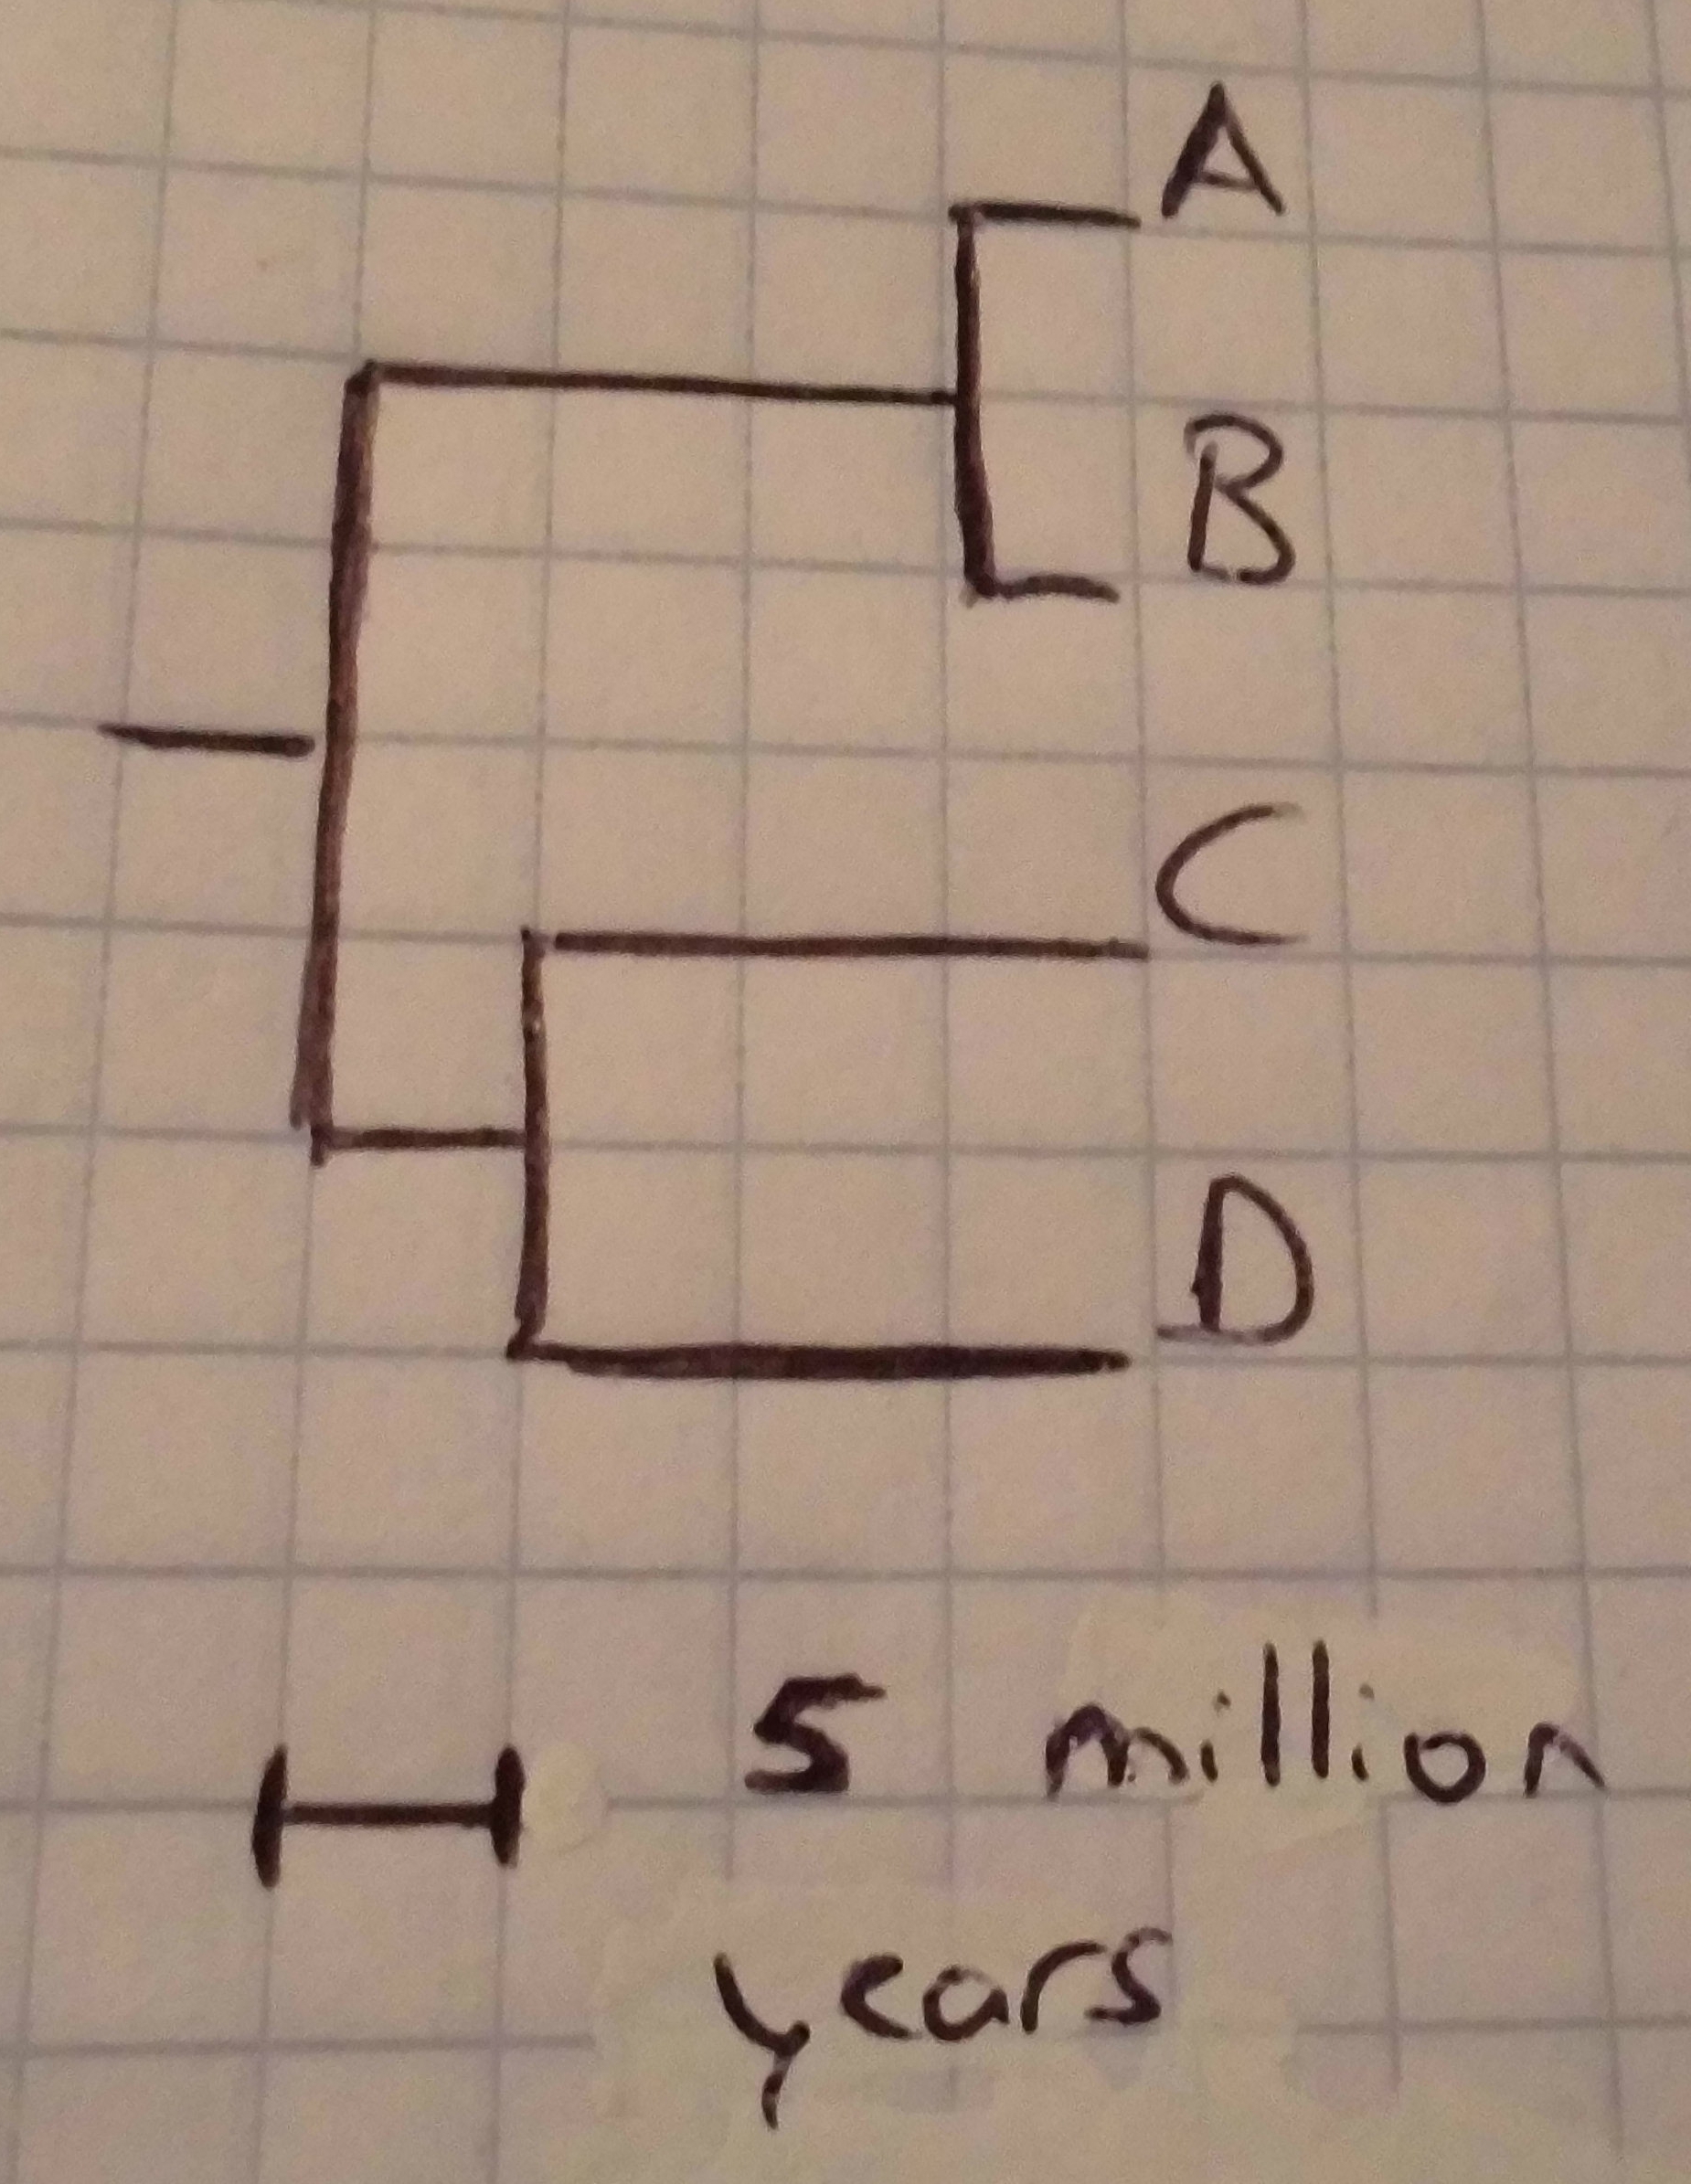 A
B
C
D
5 million
years